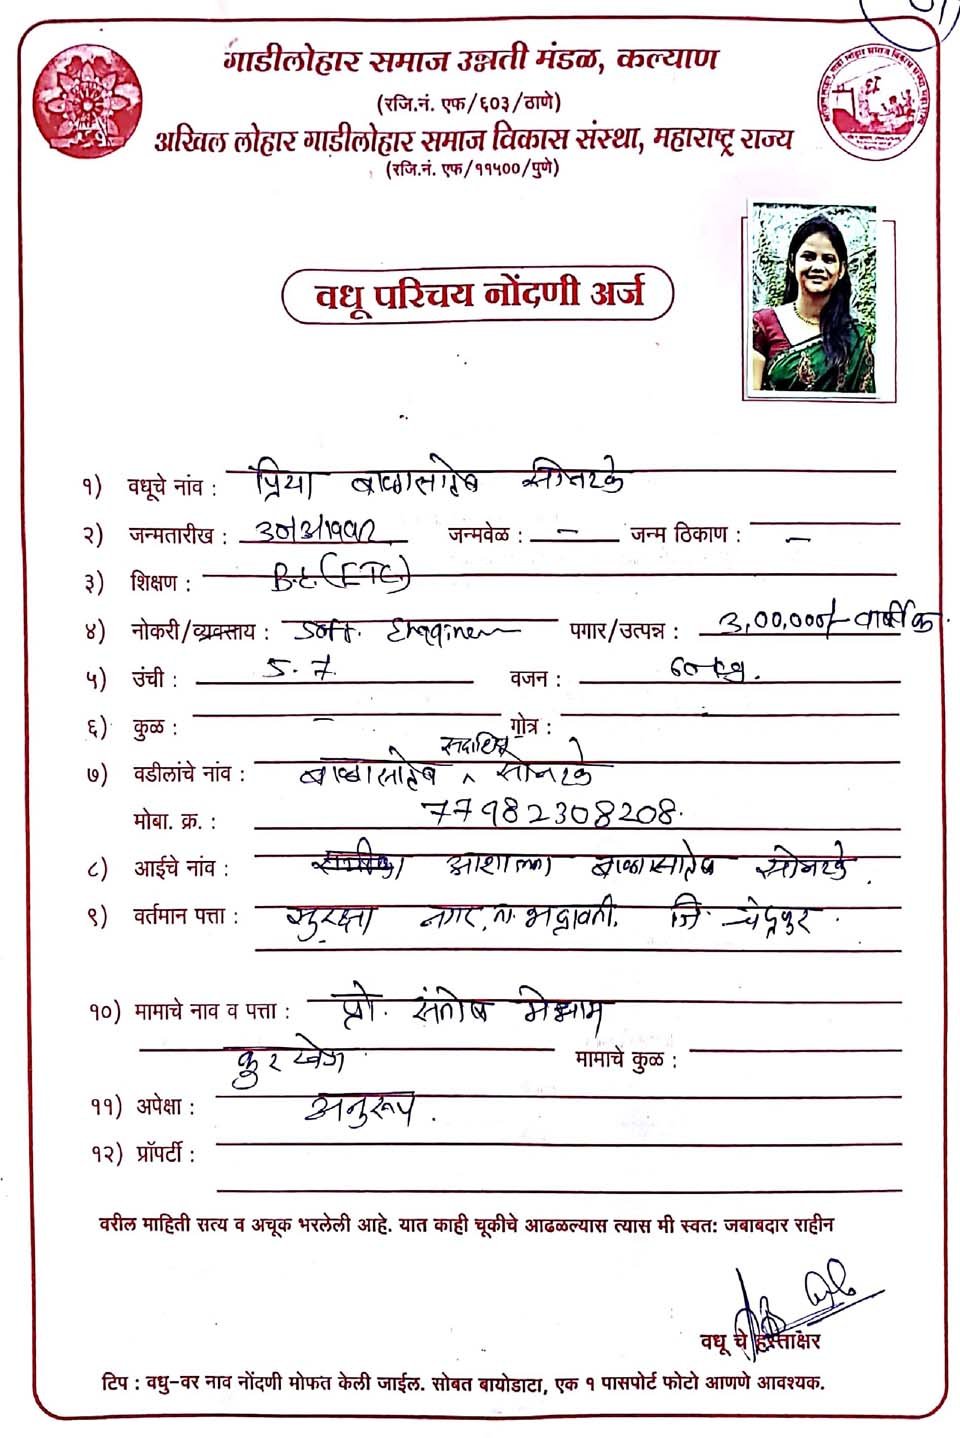 गाडीलोहार समाज उन्नती मंडळ, कल्याण
(रजि.नं. एफ/६०३/ठाणे)
अखिल लोहार गाडीलोहार समाज विकास संस्था, महाराष्ट्र राज्य
(रजि.नं. एफ/११५००/पुणे)
वधू परिचय नोंदणी अर्ज
१) वधूचे नांव : प्रिया बाळासाहेब सोनटक्के
२) जन्मतारीख : जन्मवेळ : – जन्म ठिकाण : –
३) शिक्षण : B.E. (ETC.)
४) नोकरी/व्यवसाय : Soft. Engineer पगार/उत्पन्न : 3,00,000/- वार्षिक
५) उंची : 5.7 वजन : 60 Kg.
६) कुळ : – गोत्र :
सदाशिव
७) वडीलांचे नांव : बाळासाहेब ^ सोनटक्के
मोबा. क्र. : 77982308208
८) आईचे नांव : आशालता बाळासाहेब सोनटक्के.
९) वर्तमान पत्ता : सुरक्षा नगर, ता. भद्रावती. जि. चंद्रपुर.
१०) मामाचे नाव व पत्ता : प्रो. संतोष मेश्राम
कुरखेडा मामाचे कुळ :
११) अपेक्षा : अनुरूप.
१२) प्रॉपर्टी :
वरील माहिती सत्य व अचूक भरलेली आहे. यात काही चूकीचे आढळल्यास त्यास मी स्वत: जबाबदार राहीन
वधू चे हस्ताक्षर
टिप : वधु-वर नाव नोंदणी मोफत केली जाईल. सोबत बायोडाटा, एक १ पासपोर्ट फोटो आणणे आवश्यक.